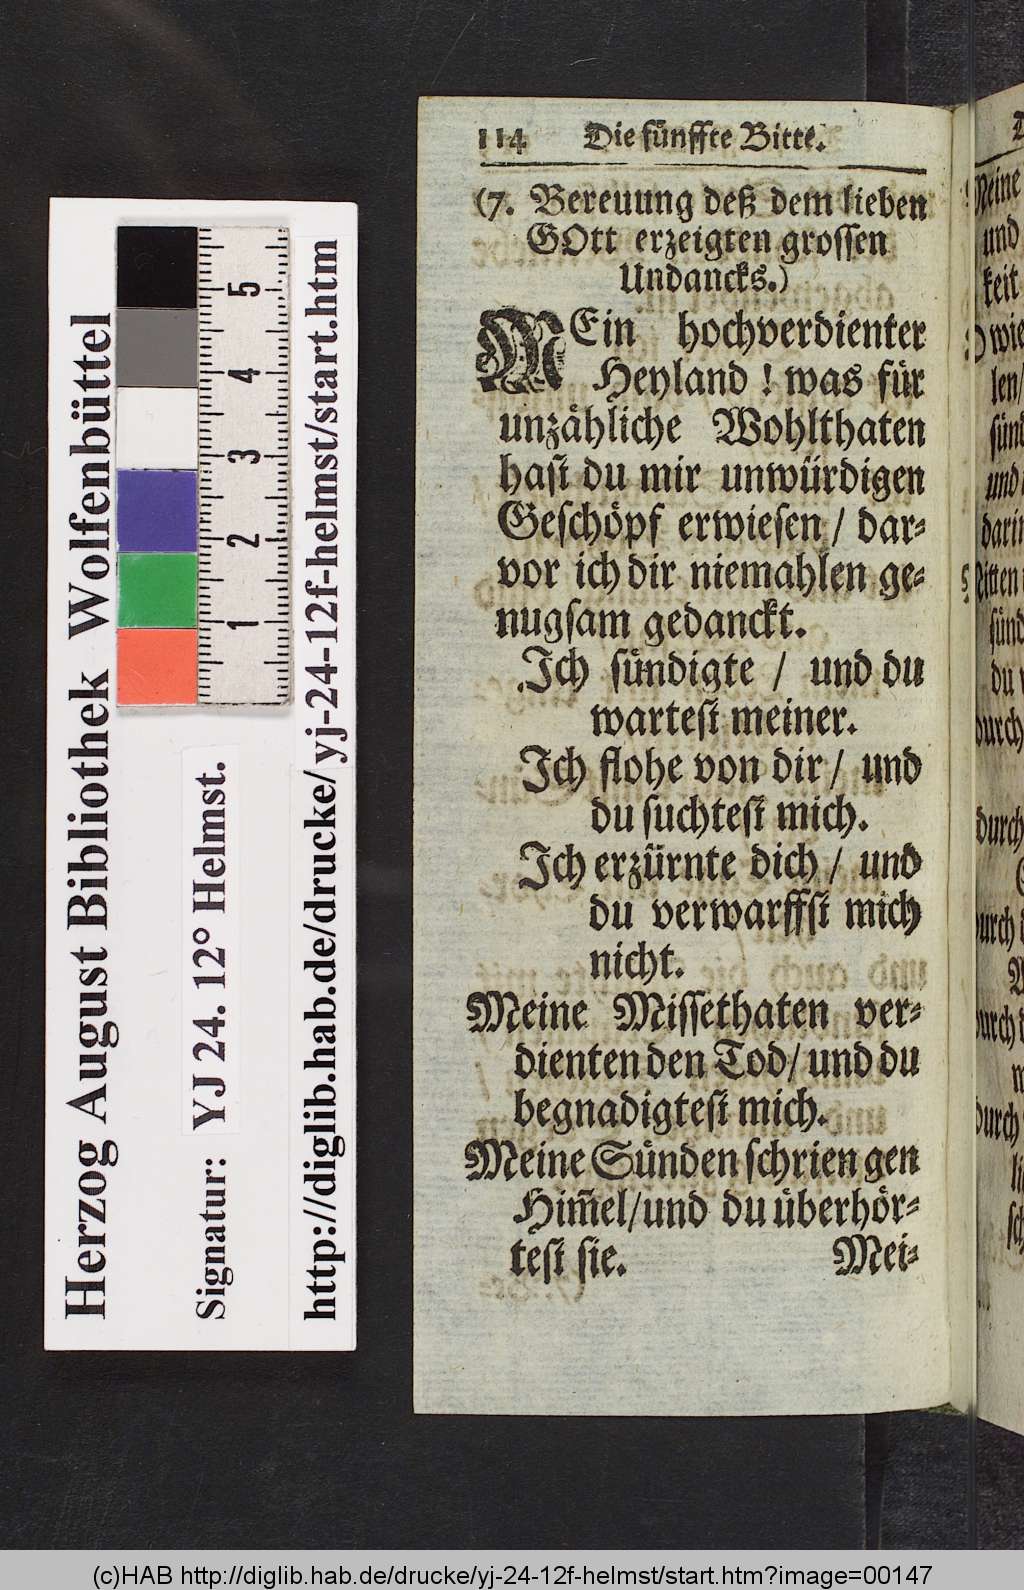 Herzog August Bibliothek Wolfenbüttel
Signatur: YJ 24. 12° Helmst.
http://diglib.hab.de/drucke/yj-24-12f-helmst/start.htm
1 2 3 4 5
114 Die fünffte Bitte.
(7. Bereuung deß dem lieben
GOtt erzeigten grossen
Undancks.)
MEin hochverdienter
Heyland ! was für
unzähliche Wohlthaten
hast du mir unwürdigen
Geschöpf erwiesen / dar⸗
vor ich dir niemahlen ge⸗
nugsam gedanckt.
Ich sündigte / und du
wartest meiner.
Ich flohe von dir / und
du suchtest mich.
Ich erzürnte dich / und
du verwarffst mich
nicht.
Meine Missethaten ver⸗
dienten den Tod / und du
begnadigtest mich.
Meine Sünden schrien gen
Him̃el / und du überhör⸗
test sie. Mei⸗
Meine
und
keit
wie
len/
und
darin
du
durch
durch
(c)HAB http://diglib.hab.de/drucke/yj-24-12f-helmst/start.htm?image=00147